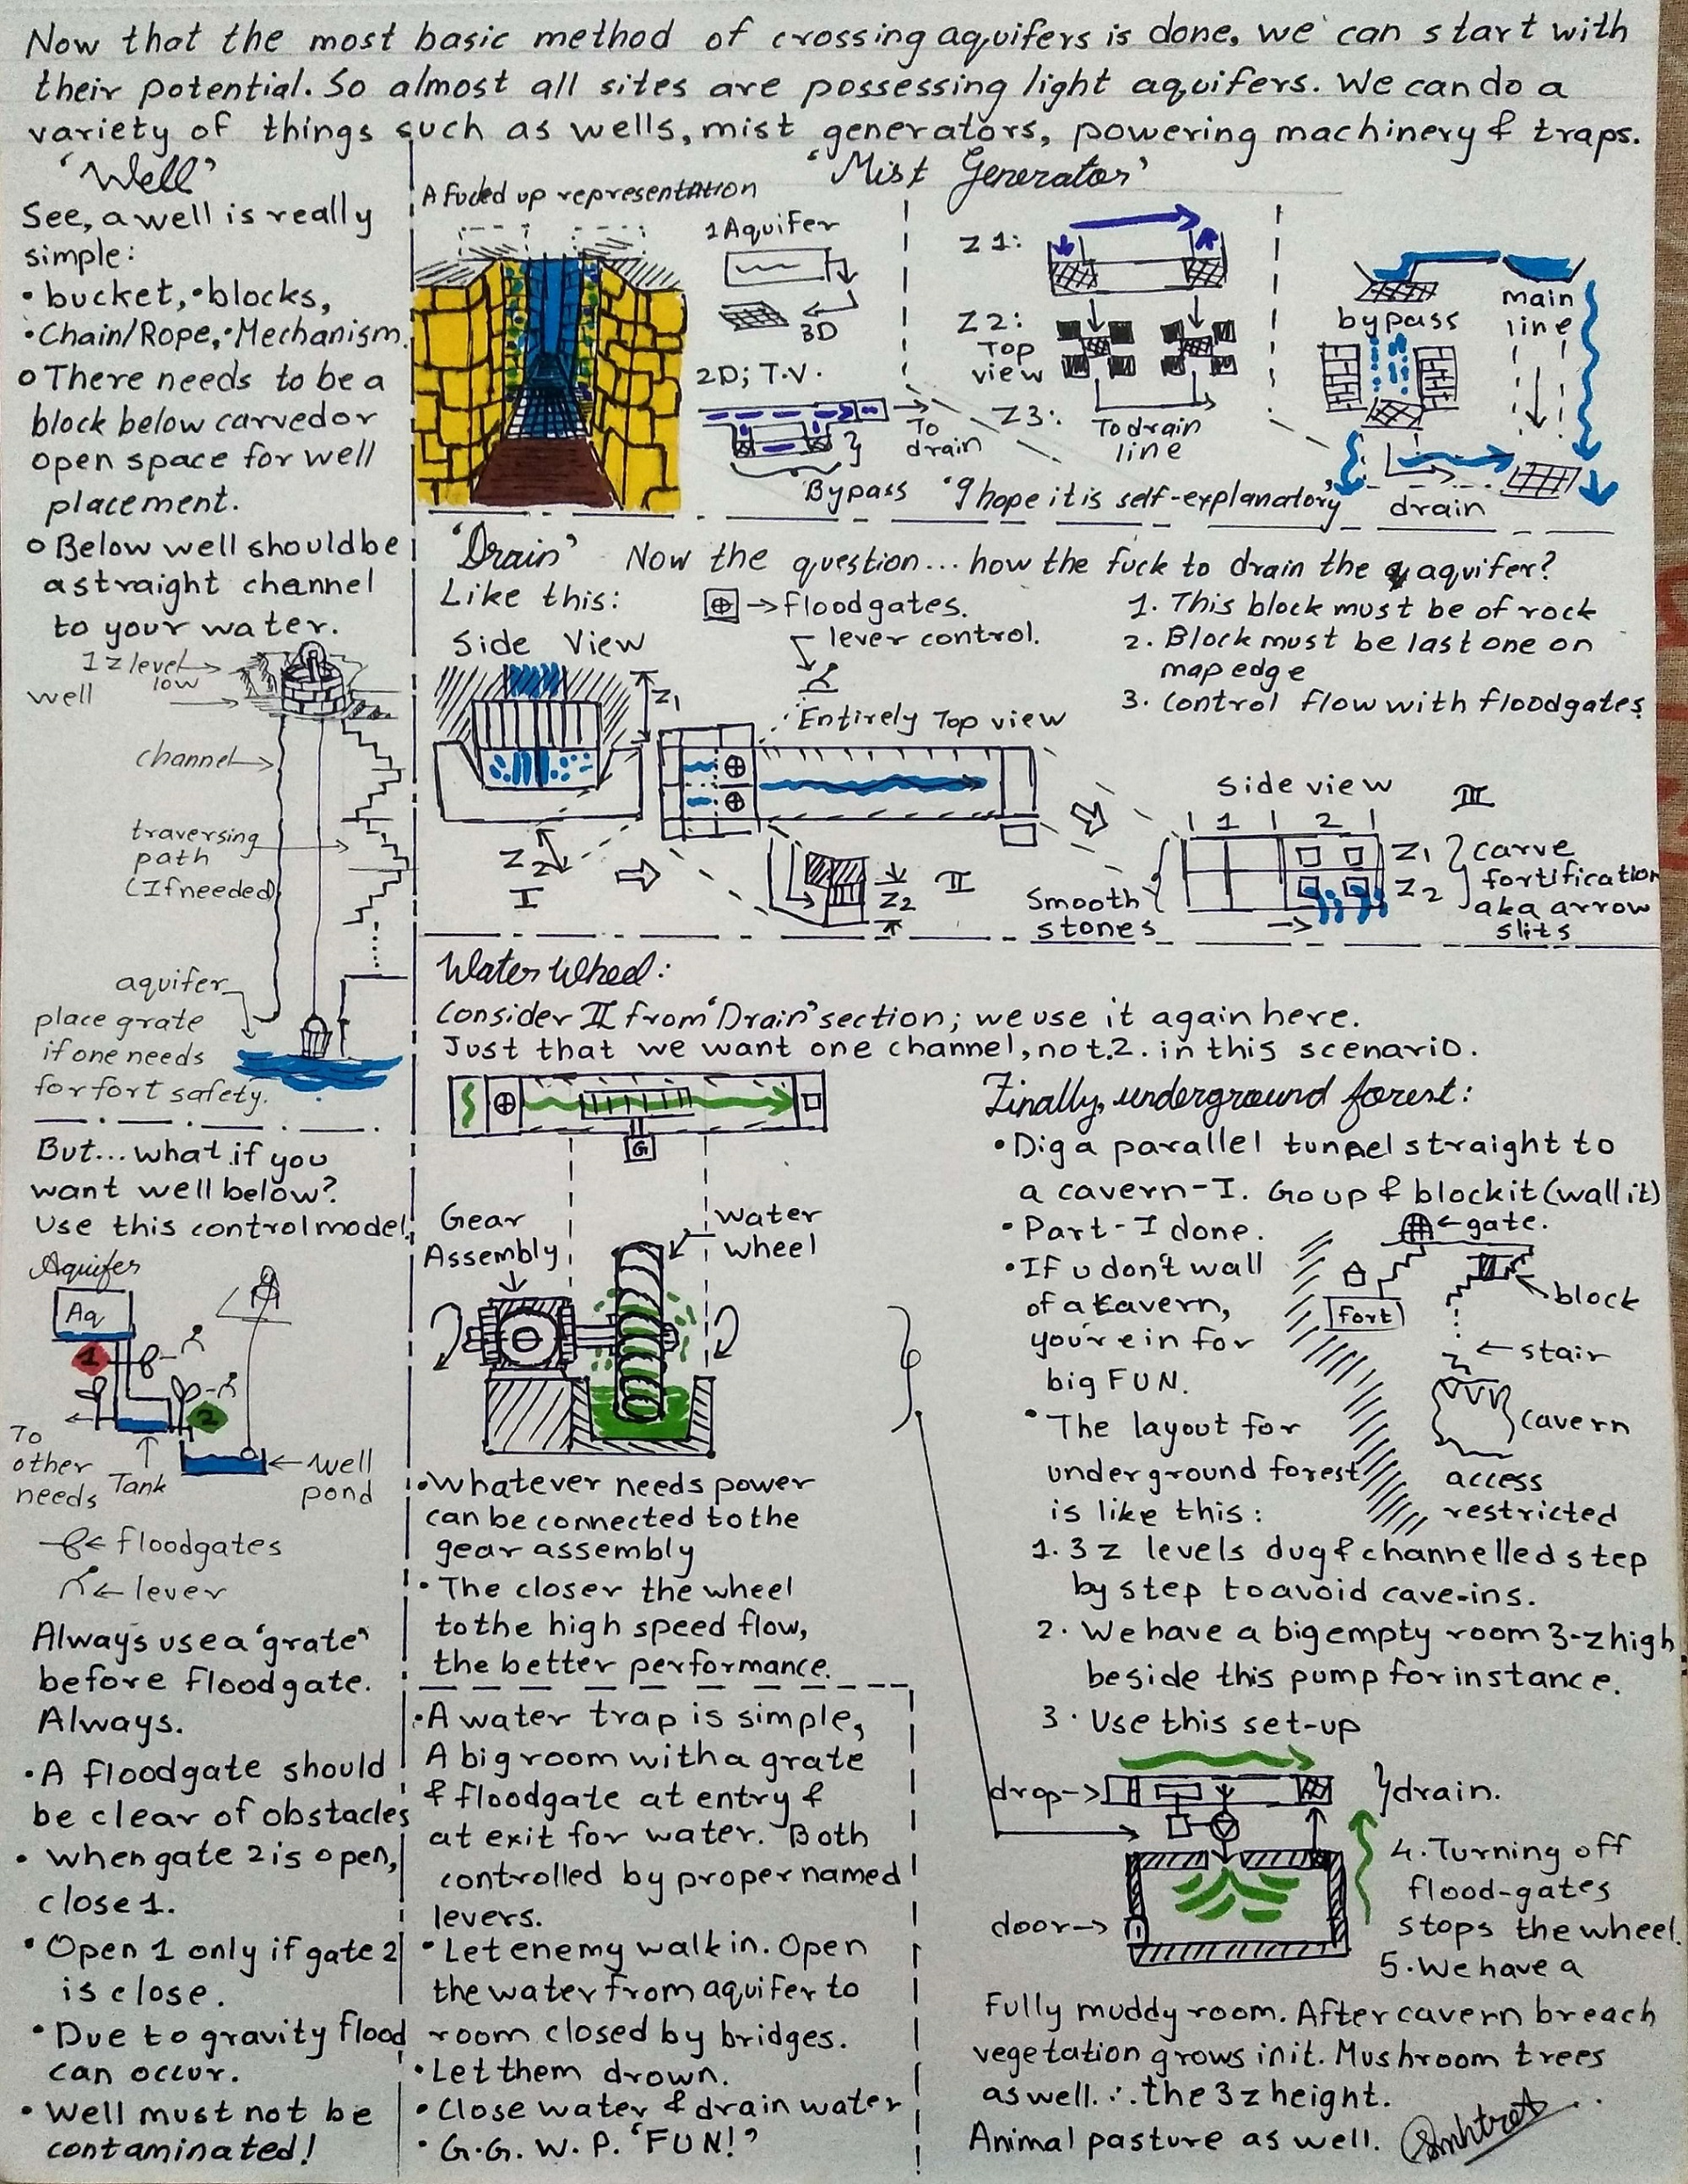 Now that the most basic method of crossing aquifers is done, we can start with
their potential. So almost all sites are possessing light aquifers. We can do a
variety of things such as wells, mist generators, powering machinery & traps.
'Well'
See, a well is really
simple:
• bucket, • blocks,
• Chain/Rope, • Mechanism.
o There needs to be a
block below carved or
open space for well
placement.
o Below well should be
a straight channel
to your water.
1 z level
low
well
channel
traversing
path
(If needed)
aquifer
place grate
if one needs
for fort safety.
But... what if you
want well below?
Use this control model.
Aquifer
Aq
1
2
To
other
needs
Tank
well
pond
floodgates
lever
Always use a 'grate'
before floodgate.
Always.
• A floodgate should
be clear of obstacles
• when gate 2 is open,
close 1.
• Open 1 only if gate 2
is close.
• Due to gravity flood
can occur.
• Well must not be
contaminated!
'Mist Generator'
A fucked up representation
1 Aquifer
3D
2D; T.V.
To
drain
Bypass
Z 1:
Z 2:
Top
view
Z 3:
To drain
line
"I hope it is self-explanatory"
bypass
main
line
drain
'Drain' Now the question... how the fuck to drain the aquifer?
Like this:
→ floodgates.
lever control.
1. This block must be of rock
2. Block must be last one on
map edge
3. Control flow with floodgates
Side View
Z1
Entirely Top view
Z2
I
Z2
II
Side view
III
1 2
Z1
Z2
Smooth
stones
carve
fortification
aka arrow
slits
Water Wheel:
Consider II from 'Drain' section; we use it again here.
Just that we want one channel, not 2. in this scenario.
G
Gear
Assembly
water
wheel
• Whatever needs power
can be connected to the
gear assembly
• The closer the wheel
to the high speed flow,
the better performance.
• A water trap is simple,
A big room with a grate
& floodgate at entry &
at exit for water. Both
controlled by proper named
levers.
• Let enemy walk in. Open
the water from aquifer to
room closed by bridges.
• Let them drown.
• Close water & drain water
• G.G. W.P. 'FUN!'
Finally, underground forest:
• Dig a parallel tunnel straight to
a cavern-I. Go up & block it (wall it)
• Part-I done.
• If u don't wall
of a cavern,
you're in for
big FUN.
• The layout for
underground forest
is like this:
gate.
block
Fort
stair
cavern
access
restricted
1. 3 z levels dug & channelled step
by step to avoid cave-ins.
2. We have a big empty room 3-z high
beside this pump for instance.
3. Use this set-up
drop
drain.
door
4. Turning off
flood-gates
stops the wheel.
5. We have a
fully muddy room. After cavern breach
vegetation grows in it. Mushroom trees
as well ∴ the 3 z height.
Animal pasture as well.